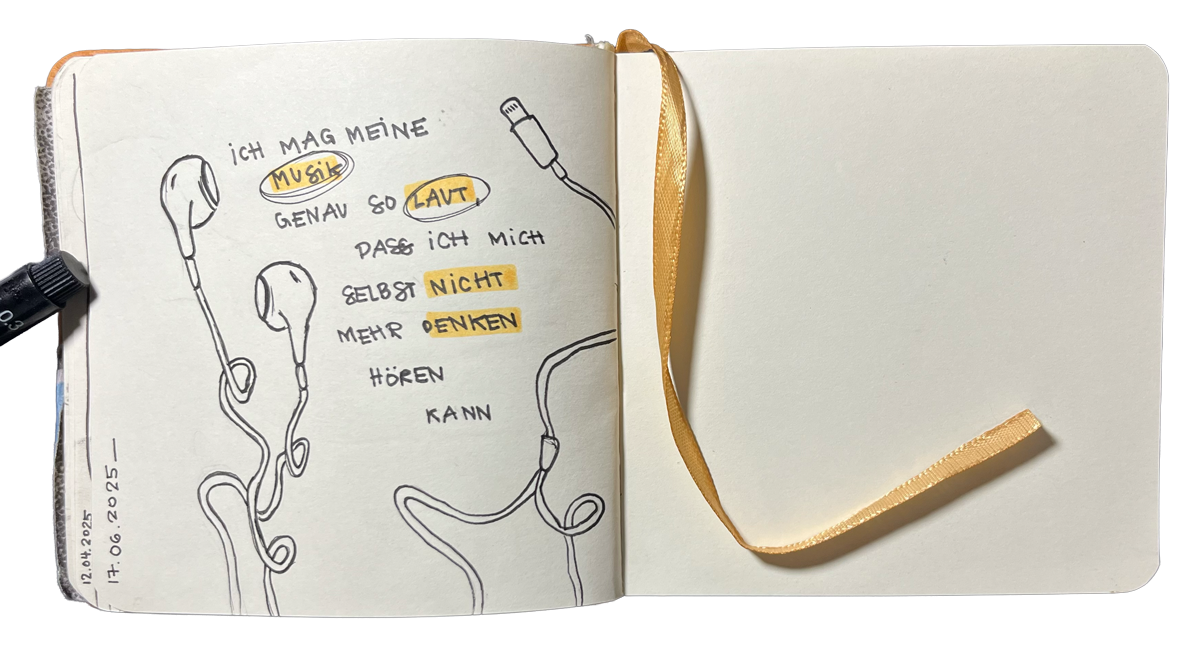 iCH MAG MEiNE
MUSiK
GENAU SO LAUT,
DASS iCH MiCH
SELBST NiCHT
MEHR DENKEN
HÖREN
KANN
12.04.2025
17.06.2025
0.3